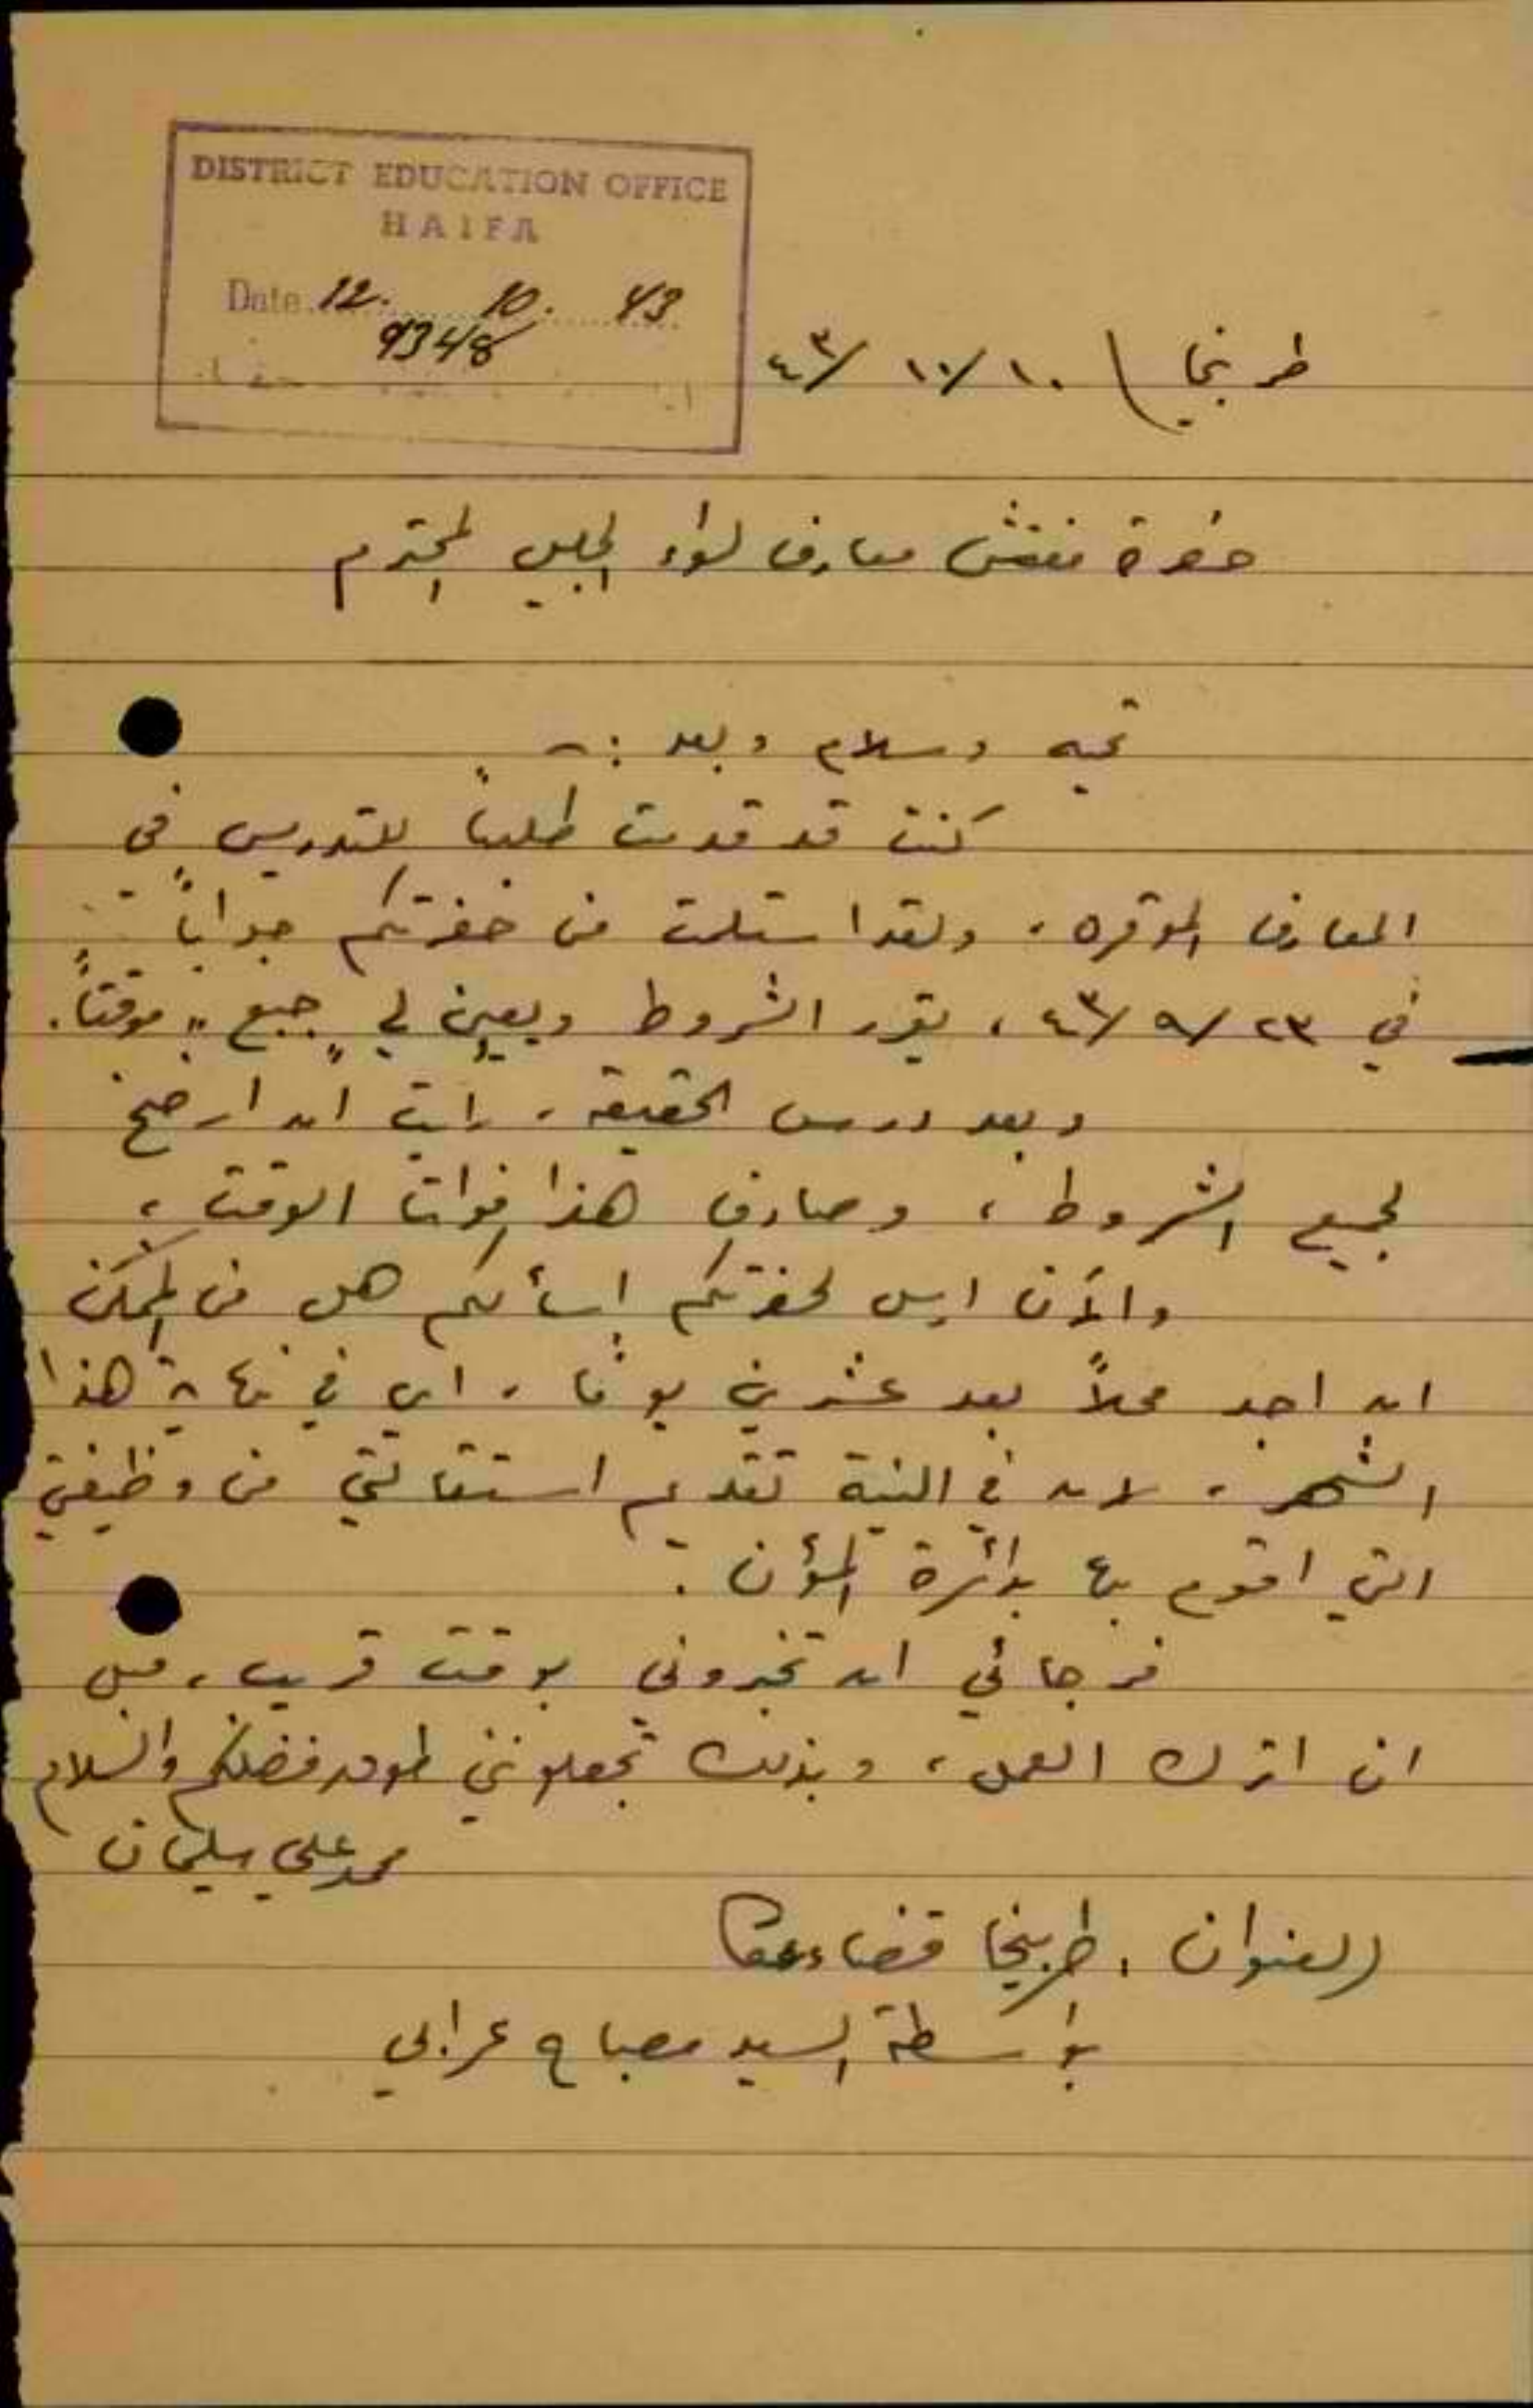 DISTRICT EDUCATION OFFICE
HAIFA
Date 12. 10. 43
9348
طربيخا / ١٠/١٠/٤٣
حضرة مفتش معارف لواء الجليل المحترم
تحيه وسلام وبعد :-
كنت قد قدمت طلباً للتدريس في
المعارف الموقره، ولقد استلمت من حضرتكم جواباً
في ٢٣/٩/٤٣، يقرر الشروط ويعين لي "جبع" موقتاً.
وبعد درس الحقيقه، رايت ان ارضخ
لجميع الشروط، وصادف هذا فوات الوقت،
والآن ارسل لحضرتكم اسألكم هل من الممكن
ان اجد محلاً بعد عشرين يوماً، اي في نهاية هذا
الشهر، لان في النية تقديم استقالتي من وظيفتي
التي اقوم بها بدائرة المؤن.
فرجائي ان تخبروني بوقت قريب، قبل
ان اترك العمل، وبذلك تجعلونني طوع فضلكم والسلام
محمد علي سليمان
العنوان. طربيخا قضاء عكا
بواسطة السيد مصباح عرابي